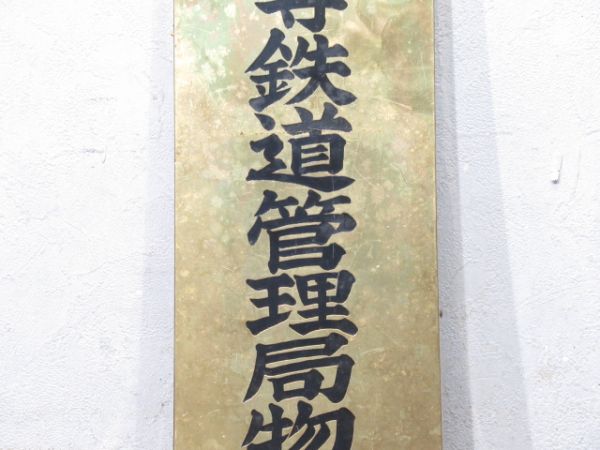 鉄道管理局物